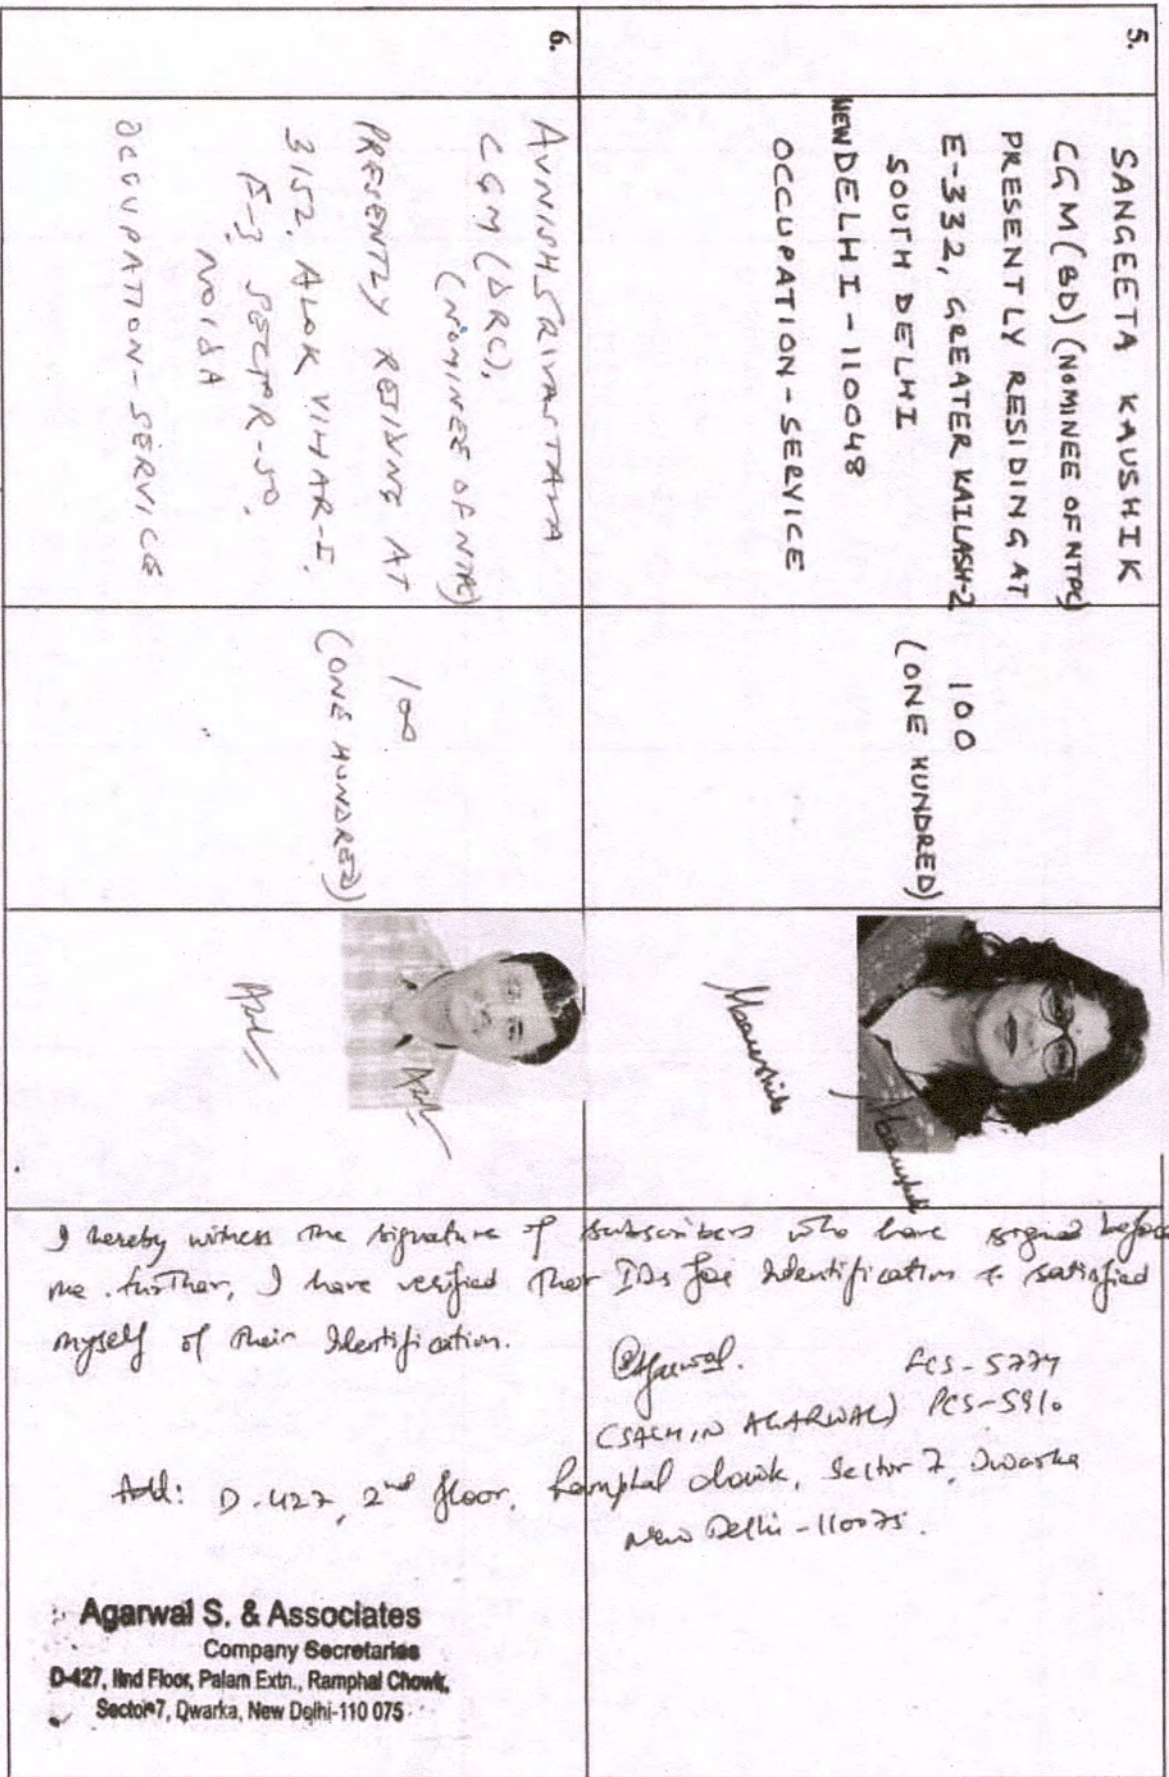 5.
SANGEETA KAUSHIK
CGM (BD) (NOMINEE OF NTPC)
PRESENTLY RESIDING AT
E-332, GREATER KAILASH-2
SOUTH DELHI
NEW DELHI - 110048
OCCUPATION - SERVICE
100
(ONE HUNDRED)
6.
AVNISH SRIVASTAVA
CGM (DRC),
(NOMINEE OF NTPC)
PRESENTLY RESIDING AT
3152, ALOK VIHAR-I,
F-3, SECTOR-50,
NOIDA
OCCUPATION - SERVICE
100
(ONE HUNDRED)
I hereby witness the signature of subscribers who have signed before
me. further, I have verified their IDs for Identification & satisfied
myself of their Identification.
FCS - 5774
(SACHIN AGARWAL) PCS - 5910
Add: D-427, 2nd floor, Ramphal Chowk, Sector 7, Dwarka
New Delhi - 110075.
Agarwal S. & Associates
Company Secretaries
D-427, IInd Floor, Palam Extn., Ramphal Chowk,
Sector-7, Dwarka, New Delhi-110 075